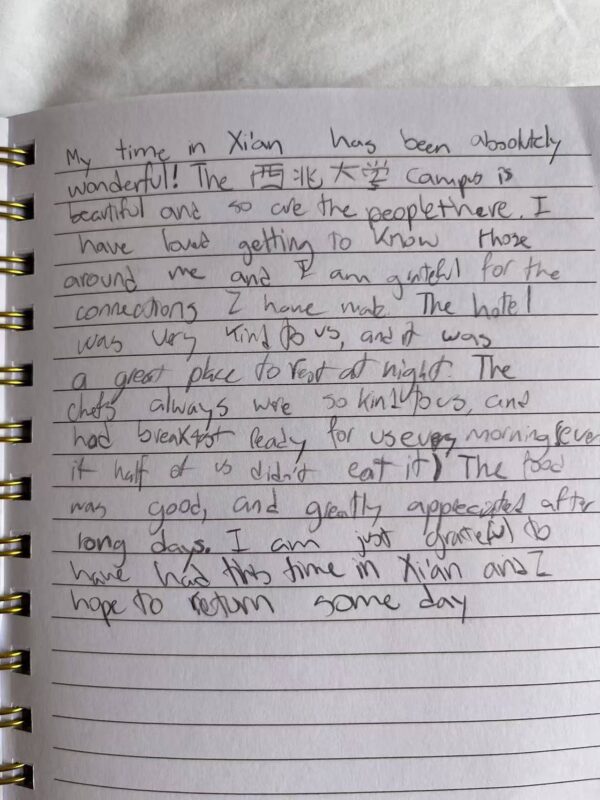 My time in Xi'an has been absolutely
wonderful! The 西北大学 campus is
beautiful and so are the people there. I
have loved getting to know those
around me and I am grateful for the
connections I have made. The hotel
was very kind to us, and it was
a great place to rest at night. The
chefs always were so kind to us, and
had breakfast ready for us every morning (even
if half of us didn't eat it) The food
was good, and greatly appreciated after
long days. I am just grateful to
have had this time in Xi'an and I
hope to return some day